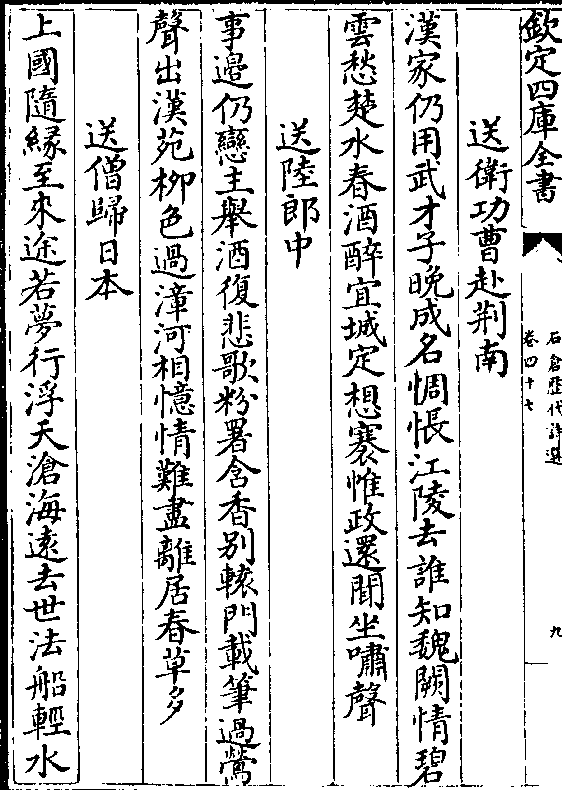 欽定四庫全書
石倉歴代詩選
卷四十七
九
送衛功曹赴荆南
漢家仍用武才子晚成名惆悵江陵去誰知魏闕情碧
雲愁楚水春酒醉宜城定想褰帷政還聞坐嘯聲
送陸郎中
事邊仍戀主舉酒復悲歌粉署含香别轅門載筆過鶯
聲出漢苑柳色過漳河相憶情難盡離居春草多
送僧歸日本
上國隨緣至來途若夢行浮天滄海遠去世法船輕水